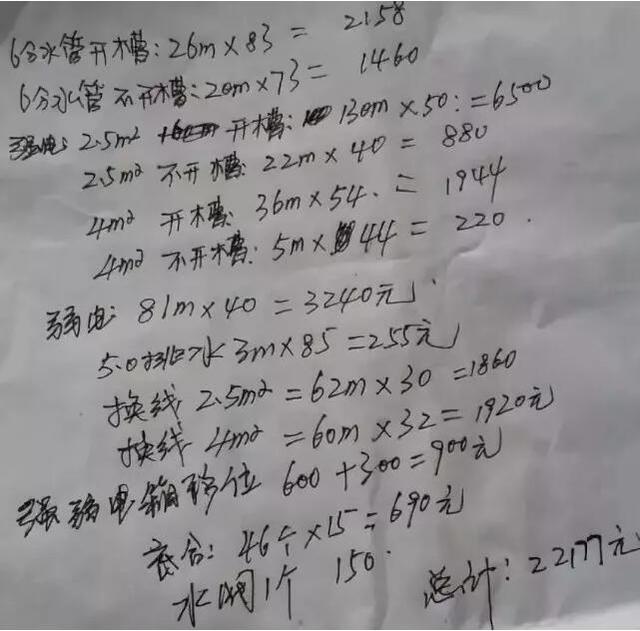 6分水管开槽: 26m×83 = 2158
6分水管 不开槽: 20m×73 = 1460
强电: 2.5m² 开槽: 130m ×50: =6500
2.5m² 不开槽: 22m × 40 = 880
4m² 开槽: 36m×54. = 1944
4m² 不开槽: 5m× 44 = 220.
弱电: 81m×40 =3240元
5.0排水 3m×85 =255元
换线 2.5m² =62m×30 =1860
换线 4m² =60m×32=1920元
强弱电箱移位 600+300=900元
底合: 46个×15=690元
水阀1个 150.
总计: 22177元